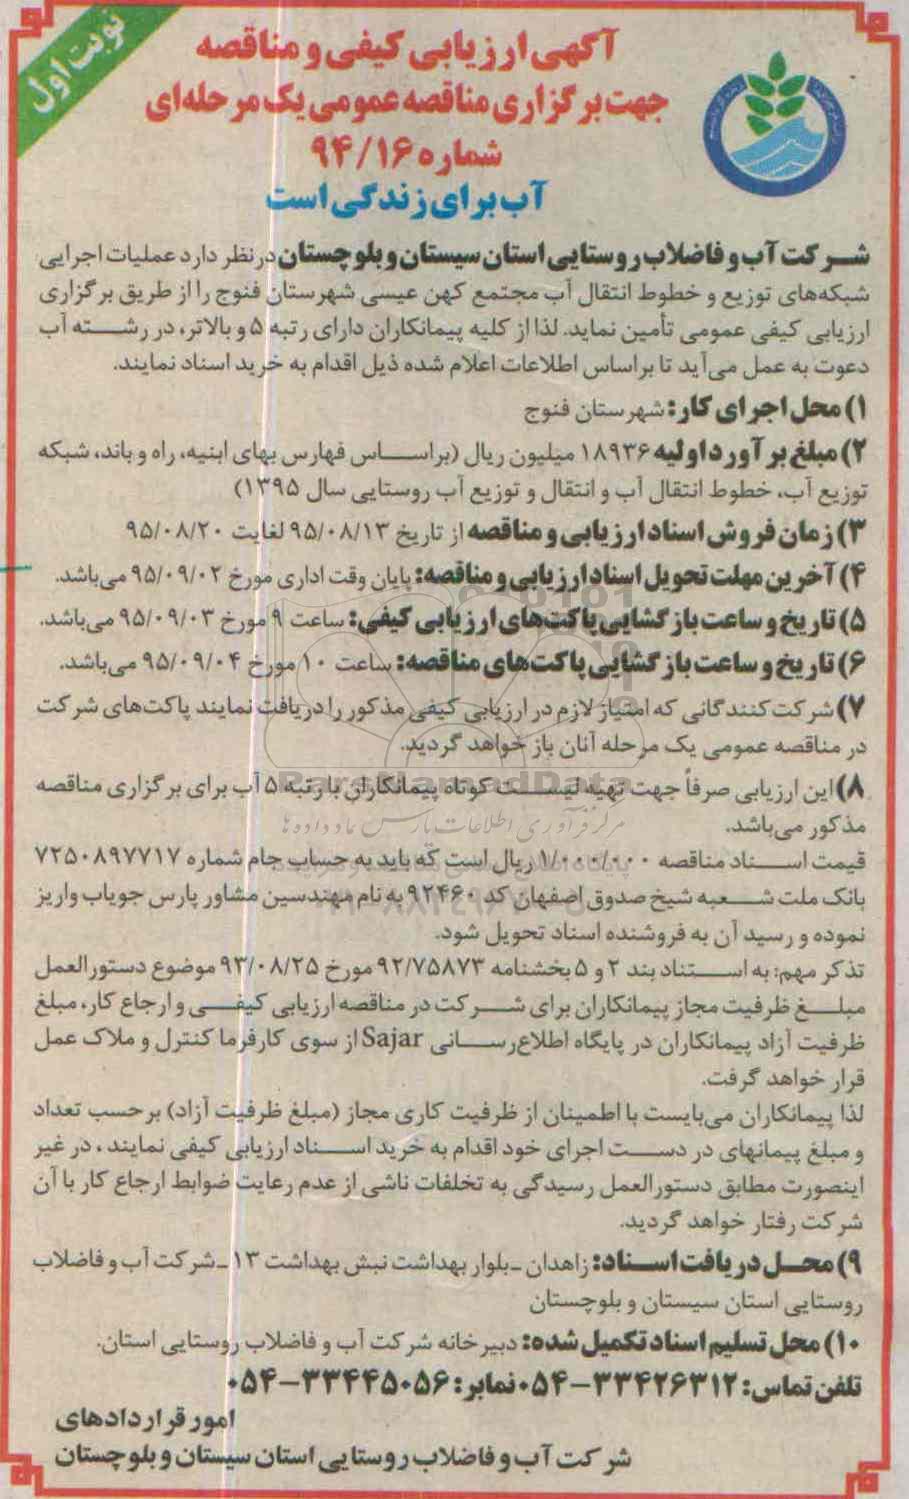 نوبت اول
آگهی ارزیابی کیفی و مناقصه
جهت برگزاری مناقصه عمومی یک مرحله‌ای
شماره ۹۴/۱۶
آب برای زندگی است
شرکت آب و فاضلاب روستایی استان سیستان و بلوچستان در نظر دارد عملیات اجرایی
شبکه‌های توزیع و خطوط انتقال آب مجتمع کهن عیسی شهرستان فنوج را از طریق برگزاری
ارزیابی کیفی عمومی تأمین نماید. لذا از کلیه پیمانکاران دارای رتبه ۵ و بالاتر، در رشته آب
دعوت به عمل می‌آید تا براساس اطلاعات اعلام شده ذیل اقدام به خرید اسناد نمایند.
۱) محل اجرای کار: شهرستان فنوج
۲) مبلغ برآورد اولیه ۱۸۹۳۶ میلیون ریال (براساس فهارس بهای ابنیه، راه و باند، شبکه
توزیع آب، خطوط انتقال آب و انتقال و توزیع آب روستایی سال ۱۳۹۵)
۳) زمان فروش اسناد ارزیابی و مناقصه از تاریخ ۹۵/۰۸/۱۳ لغایت ۹۵/۰۸/۲۰
۴) آخرین مهلت تحویل اسناد ارزیابی و مناقصه: پایان وقت اداری مورخ ۹۵/۰۹/۰۲ می‌باشد.
۵) تاریخ و ساعت بازگشایی پاکت‌های ارزیابی کیفی: ساعت ۹ مورخ ۹۵/۰۹/۰۳ می‌باشد.
۶) تاریخ و ساعت بازگشایی پاکت‌های مناقصه: ساعت ۱۰ مورخ ۹۵/۰۹/۰۴ می‌باشد.
۷) شرکت کنندگانی که امتیاز لازم در ارزیابی کیفی مذکور را دریافت نمایند پاکت‌های شرکت
در مناقصه عمومی یک مرحله آنان باز خواهد گردید.
۸) این ارزیابی صرفاً جهت تهیه لیست کوتاه پیمانکاران با رتبه ۵ آب برای برگزاری مناقصه
مذکور می‌باشد.
قیمت اسناد مناقصه ۱/۰۰۰/۰۰۰ ریال است که باید به حساب جام شماره ۷۲۵۰۸۹۷۷۱۷
بانک ملت شعبه شیخ صدوق اصفهان کد ۹۲۴۶۰ به نام مهندسین مشاور پارس جویاب واریز
نموده و رسید آن به فروشنده اسناد تحویل شود.
تذکر مهم: به استناد بند ۲ و ۵ بخشنامه ۹۲/۷۵۸۷۳ مورخ ۹۳/۰۸/۲۵ موضوع دستورالعمل
مبلغ ظرفیت مجاز پیمانکاران برای شرکت در مناقصه ارزیابی کیفی و ارجاع کار، مبلغ
ظرفیت آزاد پیمانکاران در پایگاه اطلاع‌رسانی Sajar از سوی کارفرما کنترل و ملاک عمل
قرار خواهد گرفت.
لذا پیمانکاران می‌بایست با اطمینان از ظرفیت کاری مجاز (مبلغ ظرفیت آزاد) برحسب تعداد
و مبلغ پیمانهای در دست اجرای خود اقدام به خرید اسناد ارزیابی کیفی نمایند ، در غیر
اینصورت مطابق دستورالعمل رسیدگی به تخلفات ناشی از عدم رعایت ضوابط ارجاع کار با آن
شرکت رفتار خواهد گردید.
۹) محل دریافت اسناد: زاهدان ـ بلوار بهداشت نبش بهداشت ۱۳ ـ شرکت آب و فاضلاب
روستایی استان سیستان و بلوچستان
۱۰) محل تسلیم اسناد تکمیل شده: دبیرخانه شرکت آب و فاضلاب روستایی استان.
تلفن تماس: ۳۳۴۲۶۳۱۲-۰۵۴ نمابر: ۳۳۴۴۵۰۵۶-۰۵۴
امور قراردادهای
شرکت آب و فاضلاب روستایی استان سیستان و بلوچستان
ParsNamadData
مرکز فرآوری اطلاعات پارس نماد داده‌ها